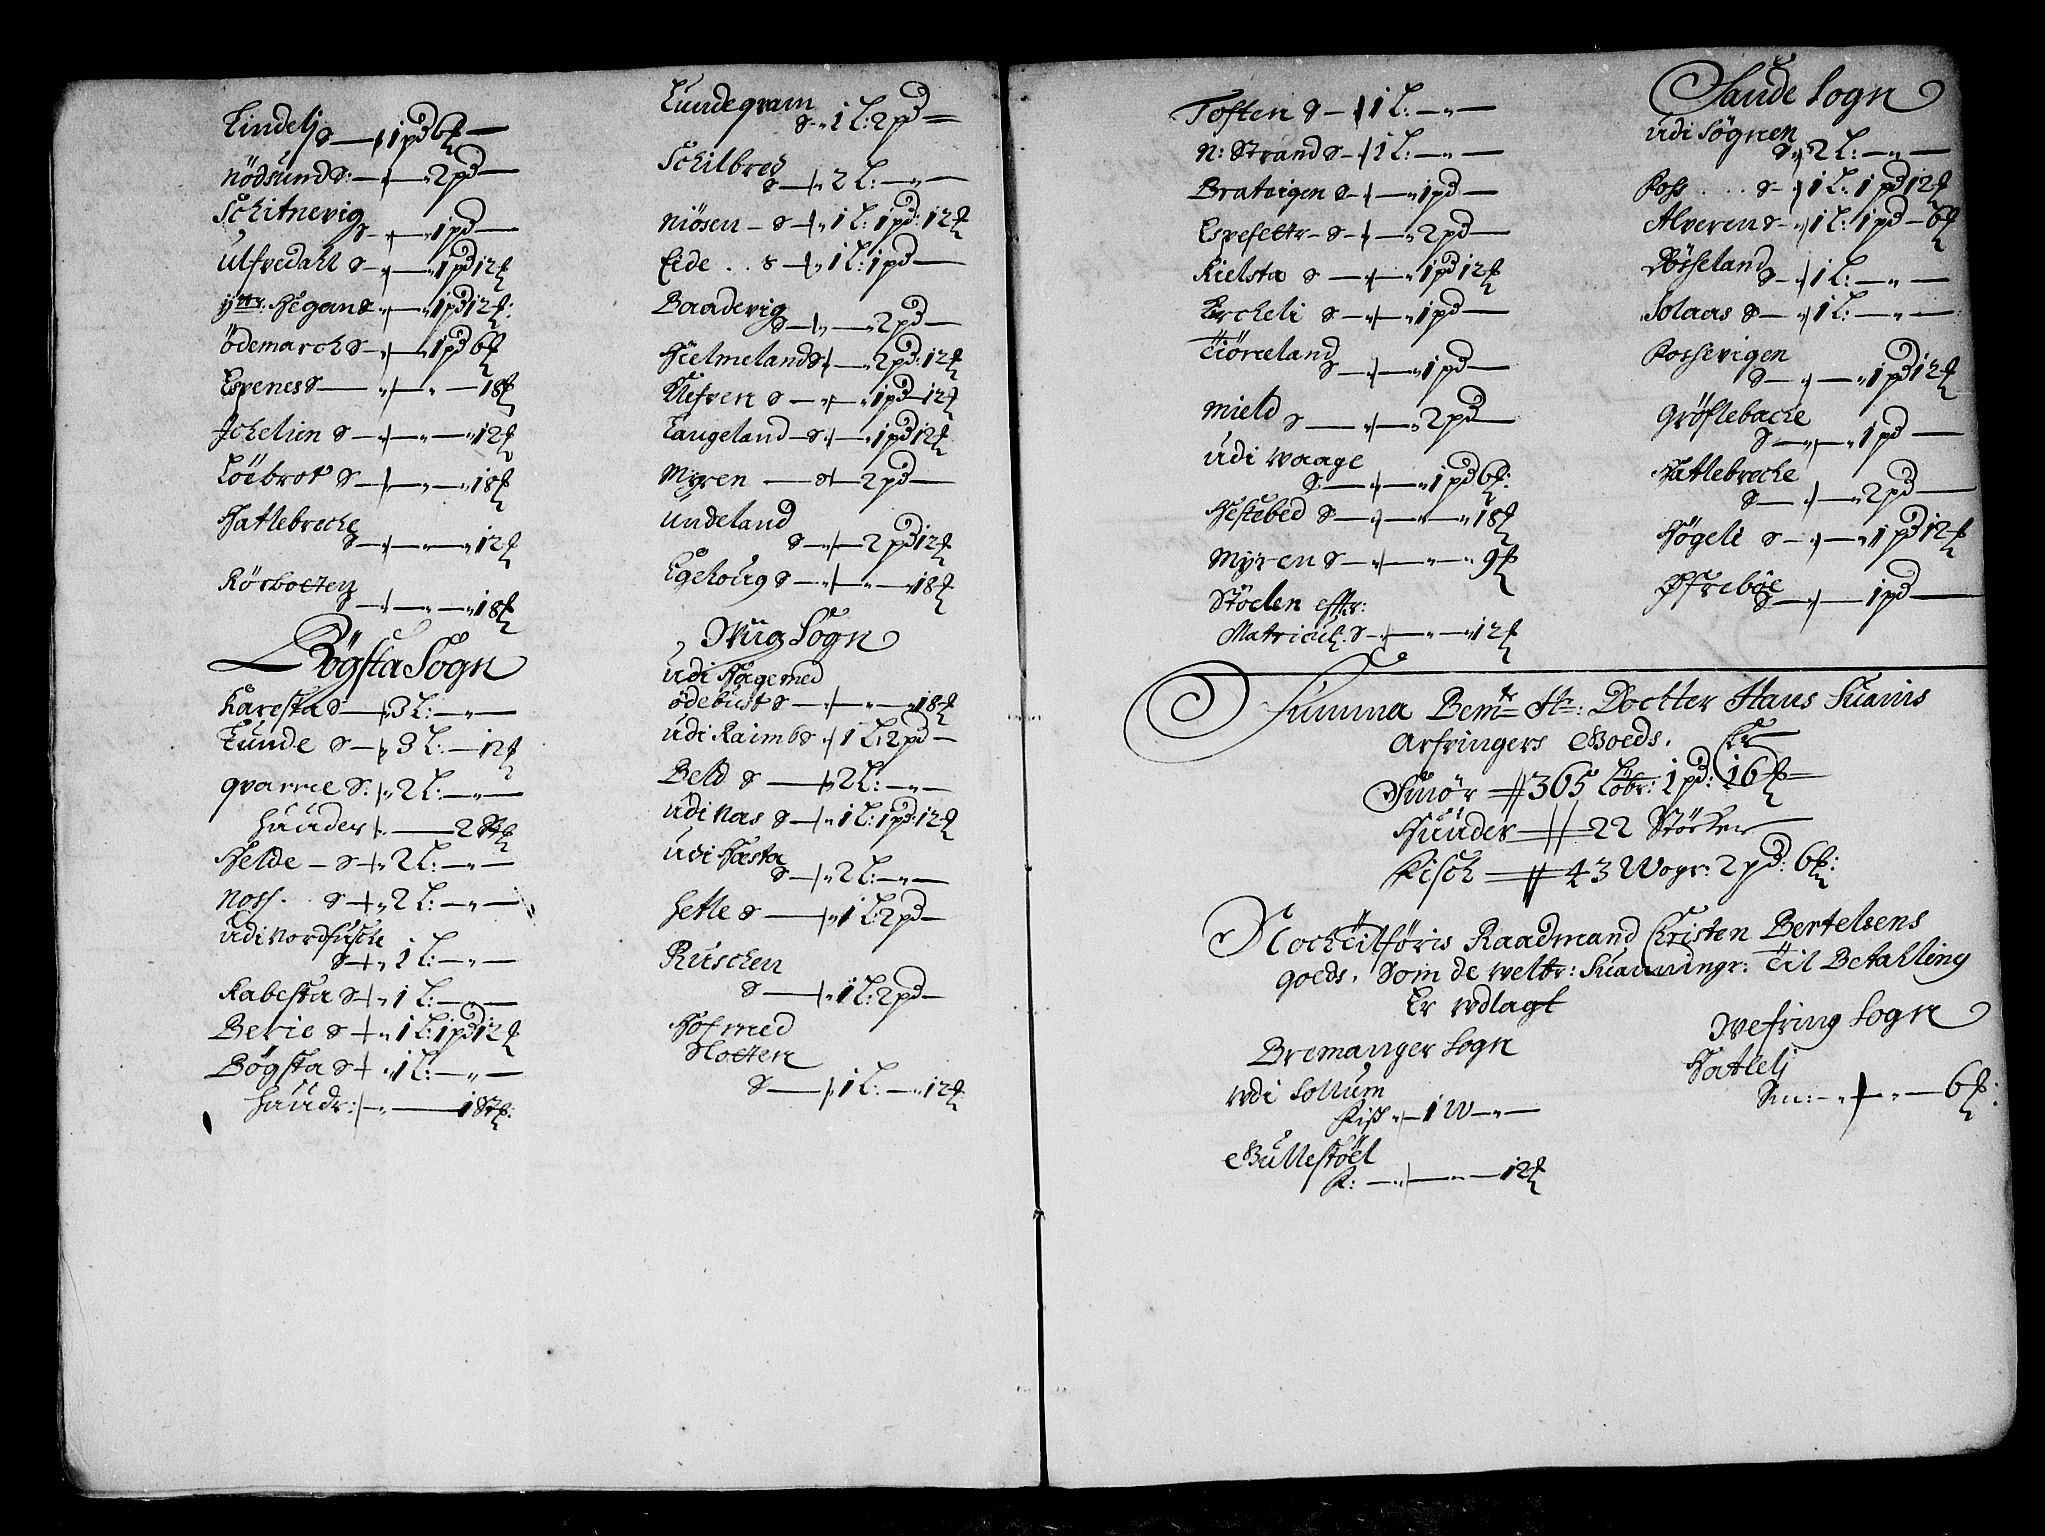 Lindelj
S — 1 pd 6 ℔
Nödsund S: — 2 pd —
Schitnevig
S — 1 pd —
Ulfvedahl S — 1 pd 12 ℔
yttr: Hegane — 1 pd 12 ℔:
Ödemarch S — 1 pd 6 ℔
Espenes S — 18 ℔
Jchelien S — 12 ℔
Löebrot S — 18 ℔
Hatlebreche
S — 12 ℔
Rörbotten
S — 18 ℔
Bögsta Sogn
Karestad — 3 L: — —
Lunde S — 3 L: — 12 ℔
qvarme S: 2 L: — —
Huuder — 2
Helde — S 2 L: — —
Noss. S 2 L: — —
Udi Nordfusche
S 1 L: — —
Rabesta S 1 L: — —
Berie S 1 L: 1 pd 12 ℔
Bögsta S 1 L: — —
Huudr: — 18 ℔:
Lundegram
S 1 L: 2 pd —
Schilbred
S — 2 L: — —
Niösen — S 1 L: 1 pd: 12 ℔
Eide .. S 1 L: 1 pd —
Baadevig
S — 2 pd —
Hielmeland S — 2 pd: 12 ℔
Klefven S — 1 pd 12 ℔
Langeland — S — 1 pd 12 ℔
Myren — S 2 pd —
Undeland
S — 2 pd 12 ℔
Egehoug S — 18 ℔
Wiig Sogn
Udi Hage med
ödebust S — 18 ℔
Udi Raimb S 1 L: 2 pd —
Beld S — 2 L: — —
Udi Naas S — 1 L: 1 pd: 12 ℔
Udi Hæsta
S — 2 L: — —
Hetle S — 1 L: 2 pd —
Ruschen
S — 1 L: 2 pd —
Hof med
Slotten
S — 1 L: — 12 ℔
Toften S — 1 L: — —
N: Strand S — 1 L: — —
Bratvigen S — 1 pd —
Espesettr — S — 2 pd —
Kielsta S — 1 pd 12 ℔
Ercheli S — 1 pd —
Tiörreland
S — 1 pd —
Mield S — 2 pd —
Udi Waage
S — 1 pd 6 ℔:
Hestebed S — 18 ℔
Myren S — 9 ℔
Stöelen efftr:
Matricul: S — 12 ℔
Sande Sogn
Udi Sögnen
S 2 L: — —
Foss ... S — 1 L: 1 pd 12 ℔
Alveren S — 1 L: 1 pd — 6 ℔
Dösseland
S — 1 L: — —
Solaas S — 1 L: — —
Fossevigen
S — 1 pd 12 ℔
Gröflebacke
S — 1 pd —
Hatlebreche
S — 2 pd —
Högeli S — 1 pd 12 ℔
Öfreböe
S — 1 pd —
Summa Bemte Hr: Docktter Hans Suanis
Arfvingers Goeds. Er
Smör 365 Löbr: 1 pd: 16 ℔
Huuder 22 Störker
Fisch 43 Wogr: 2 pd: 6 ℔:
Noch Tilföris Raadmand Christen Bertelsens
goeds. Som de weltr: Suaningr: Til Betahling
Er wdlagt
Bremanger Sogn
Wdi Sollum
Fisk — 1 W — —
Gullestöel
F: — 12 ℔
Wefring Sogn
Hatlelj
Sm: — 6 ℔: